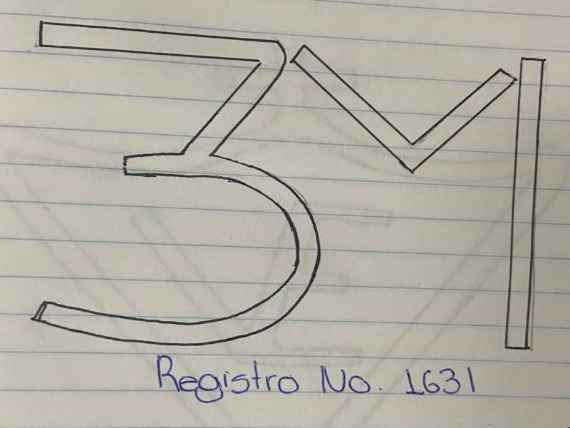 3M
Registro No. 1631